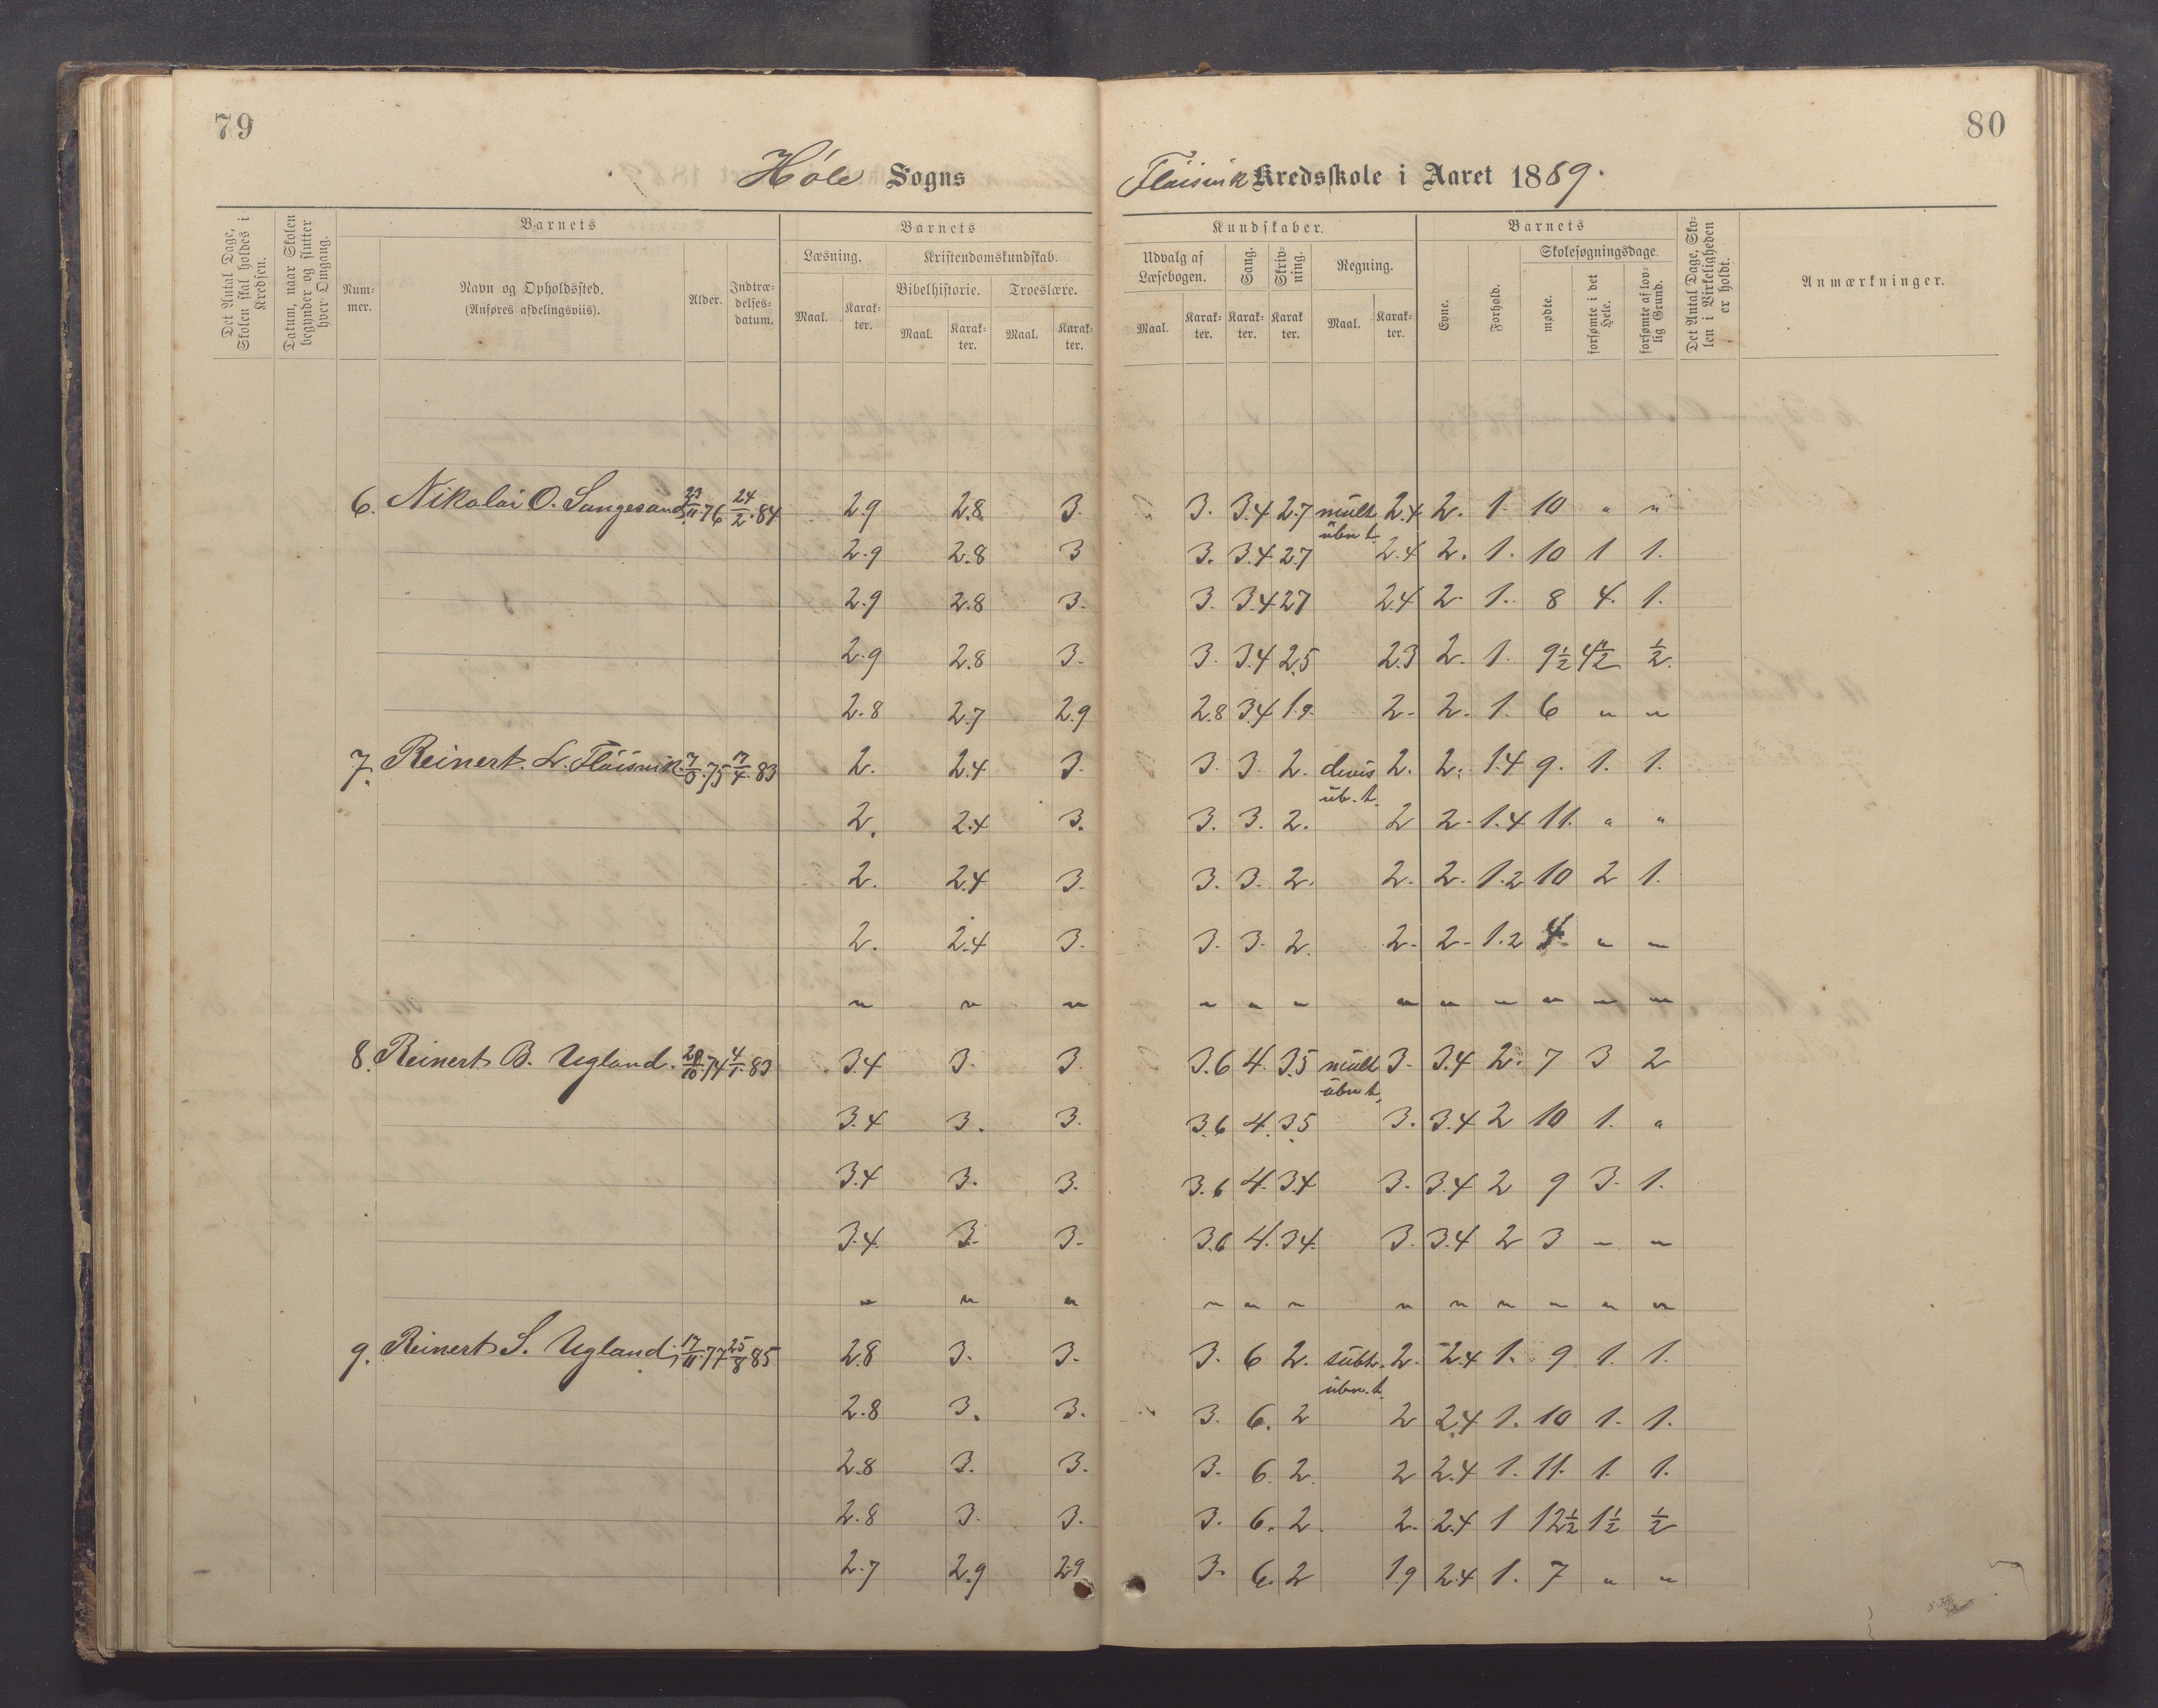 79
80
Höle Sogns Flöisvik Kredsskole i Aaret 1889.
Det Antal Dage, Skolen skal holdes i Kredsen.
Datum, naar Skolen begynder og slutter hver Omgang.
Barnets
Nummer.
Navn og Opholdssted.
(Anføres afdelingsviis).
Alder.
Indtrædelsesdatum.
Barnets
Læsning.
Maal. Karakter.
Kristendomskundskab.
Bibelhistorie. Troeslære.
Maal. Karakter. Maal. Karakter.
Kundskaber.
Udvalg af Læsebogen.
Maal. Karakter.
Sang.
Karakter.
Skrivning.
Karakter.
Regning.
Maal. Karakter.
Barnets
Evne.
Forhold.
Skolesøgningsdage.
mødte.
forsømte i det Hele.
forsømte af lovlig Grund.
Det Antal Dage, Skolen i Virkeligheden er holdt.
Anmærkninger.
6. Nikolai O. Sangesand 23/11.76 24/2.84 2.9 2.8 3. 3. 3.4 2.7 mult. übn t. 2.4 2. 1. 10 " "
2.9 2.8 3 3. 3.4 2.7 2.4 2. 1. 10 1 1.
2.9 2.8 3. 3. 3.4 2.7 2.4 2. 1. 8 4. 1.
2.9 2.8 3. 3. 3.4 2.5 2.3 2. 1. 9½ 4½ ½
2.8 2.7 2.9 2.8 3.4 1.9 2. 2. 1. 6 " "
7. Reinert. L. Flöisvik. 75 7/4.83 2. 2.4 3. 3. 3. 2. divis üb. t. 2. 2. 1.4 9. 1. 1.
2. 2.4 3. 3. 3. 2. 2 2. 1.4 11. " "
2. 2.4 3. 3. 3. 2. 2. 2. 1.2 10 2 1.
2. 2.4 3. 3. 3. 2. 2. 2. 1.2 4 " "
" " " " " " " " " " " "
8. Reinert B. Ugland. 74 4/1.83 3.4 3. 3. 3.6 4. 3.5 mult übn t. 3. 3.4 2. 7 3 2
3.4 3. 3. 3.6 4. 3.5 3. 3.4 2 10 1. "
3.4 3. 3. 3.6 4. 3.4 3. 3.4 2 9 3. 1.
3.4 3. 3. 3.6 4. 3.4. 3. 3.4 2 3 " "
" " " " " " " " " " " "
9. Reinert S. Ugland, 17/11.77 25/8 85 2.8 3. 3. 3. 6 2. subt. übn. t. 2. 2.4 1. 9 1. 1.
2.8 3. 3. 3. 6. 2 2 2.4 1. 10 1. 1.
2.8 3. 3. 3. 6. 2. 2 2.4 1. 11. 1. 1.
2.8 3. 3. 3. 6. 2. 2. 2.4 1 12½ 1½ ½
2.7 2.9 2.9 3. 6. 2 1.9 2.4 1. 7 " "